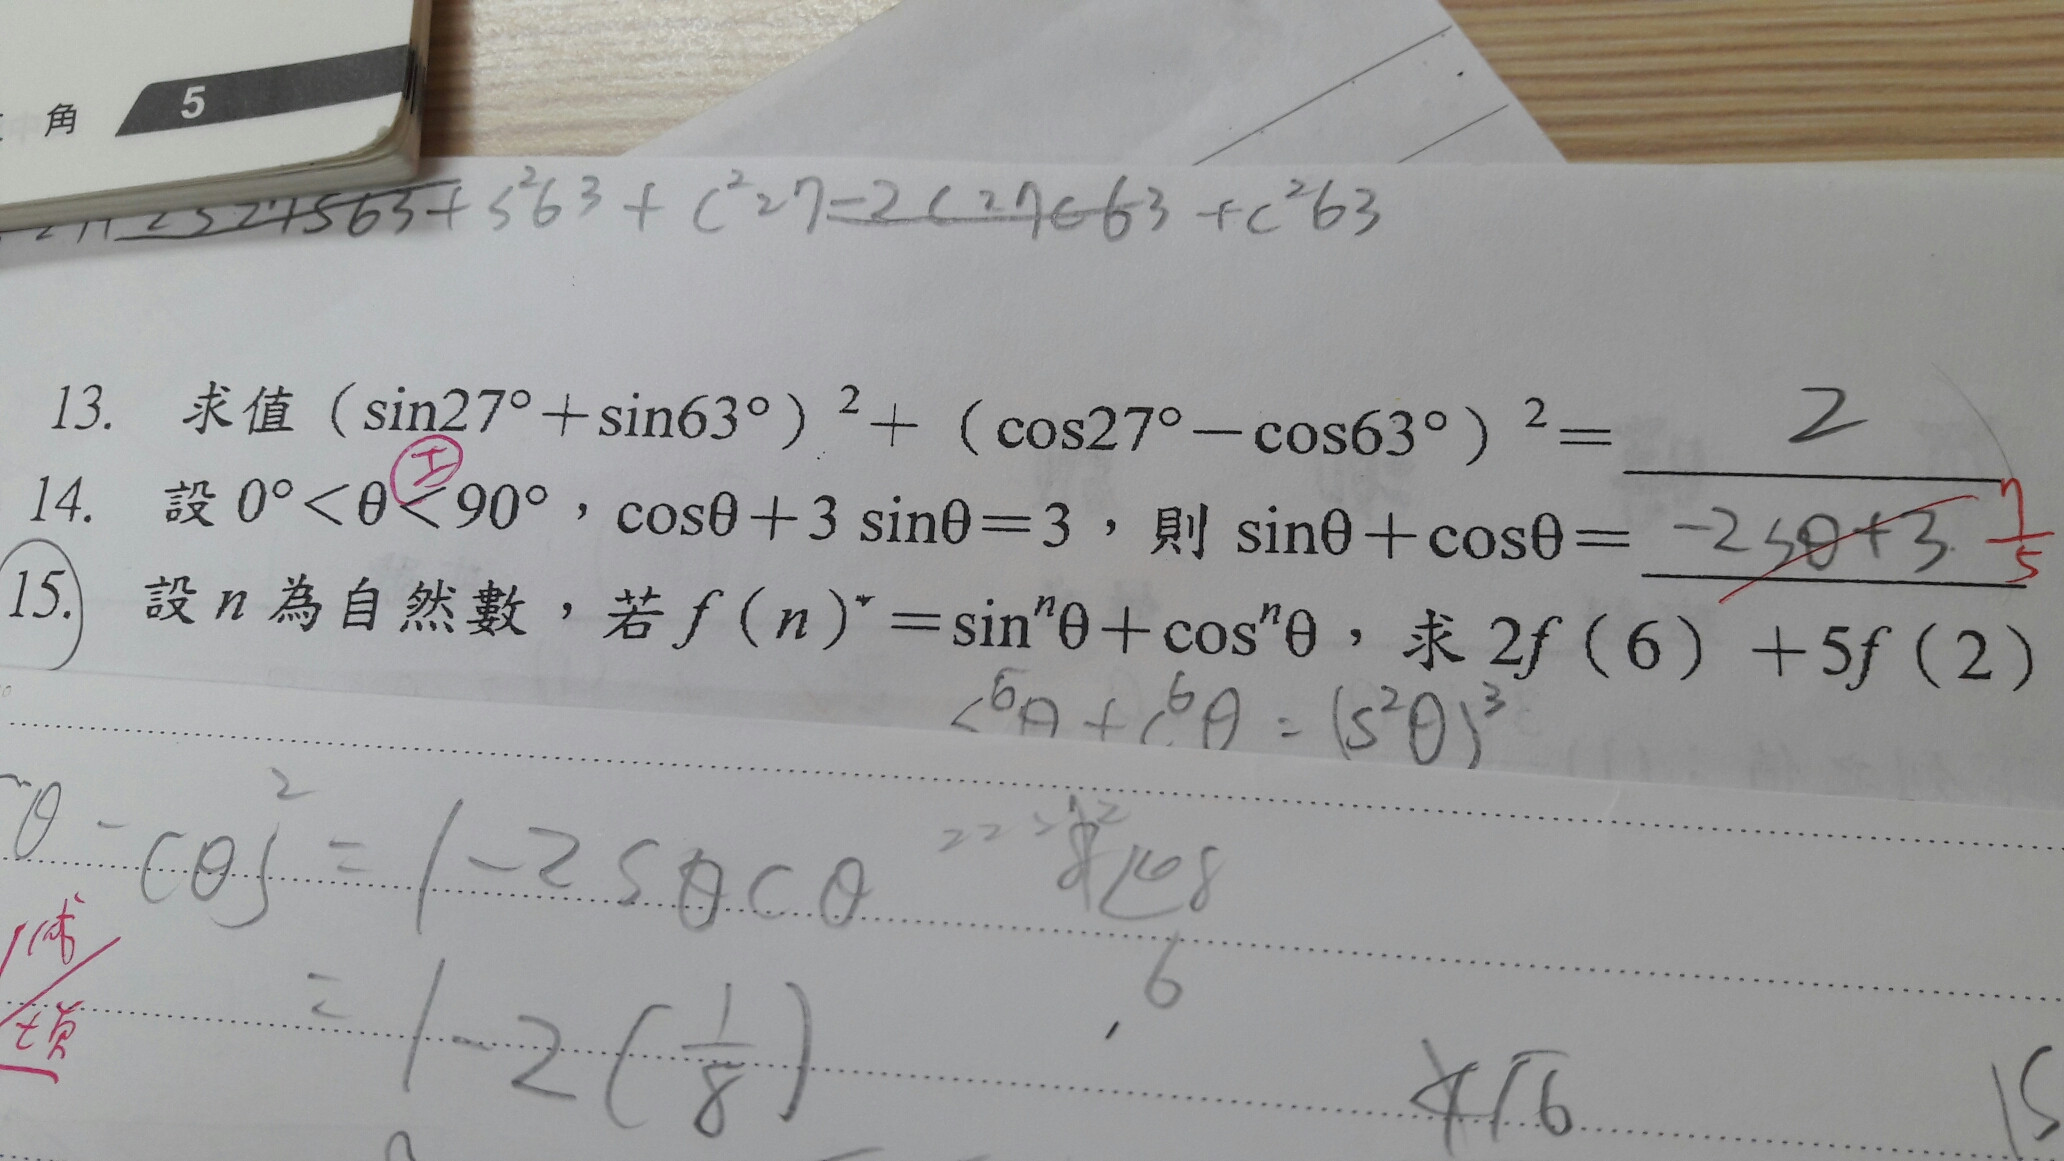 角 5
2s27s63+s²63+c²27-2c27c63+c²63
13. 求值(sin27°+sin63°)²+(cos27°-cos63°)²= 2
14. 設0°<θ<90°,cosθ+3 sinθ=3,則 sinθ+cosθ= -2sθ+3 7/5
15. 設n為自然數,若f(n)=sinⁿθ+cosⁿθ,求2f(6)+5f(2)
s⁶θ+c⁶θ=(s²θ)³
θ-cθ)²=1-2sθcθ
=1-2(1/8)
6